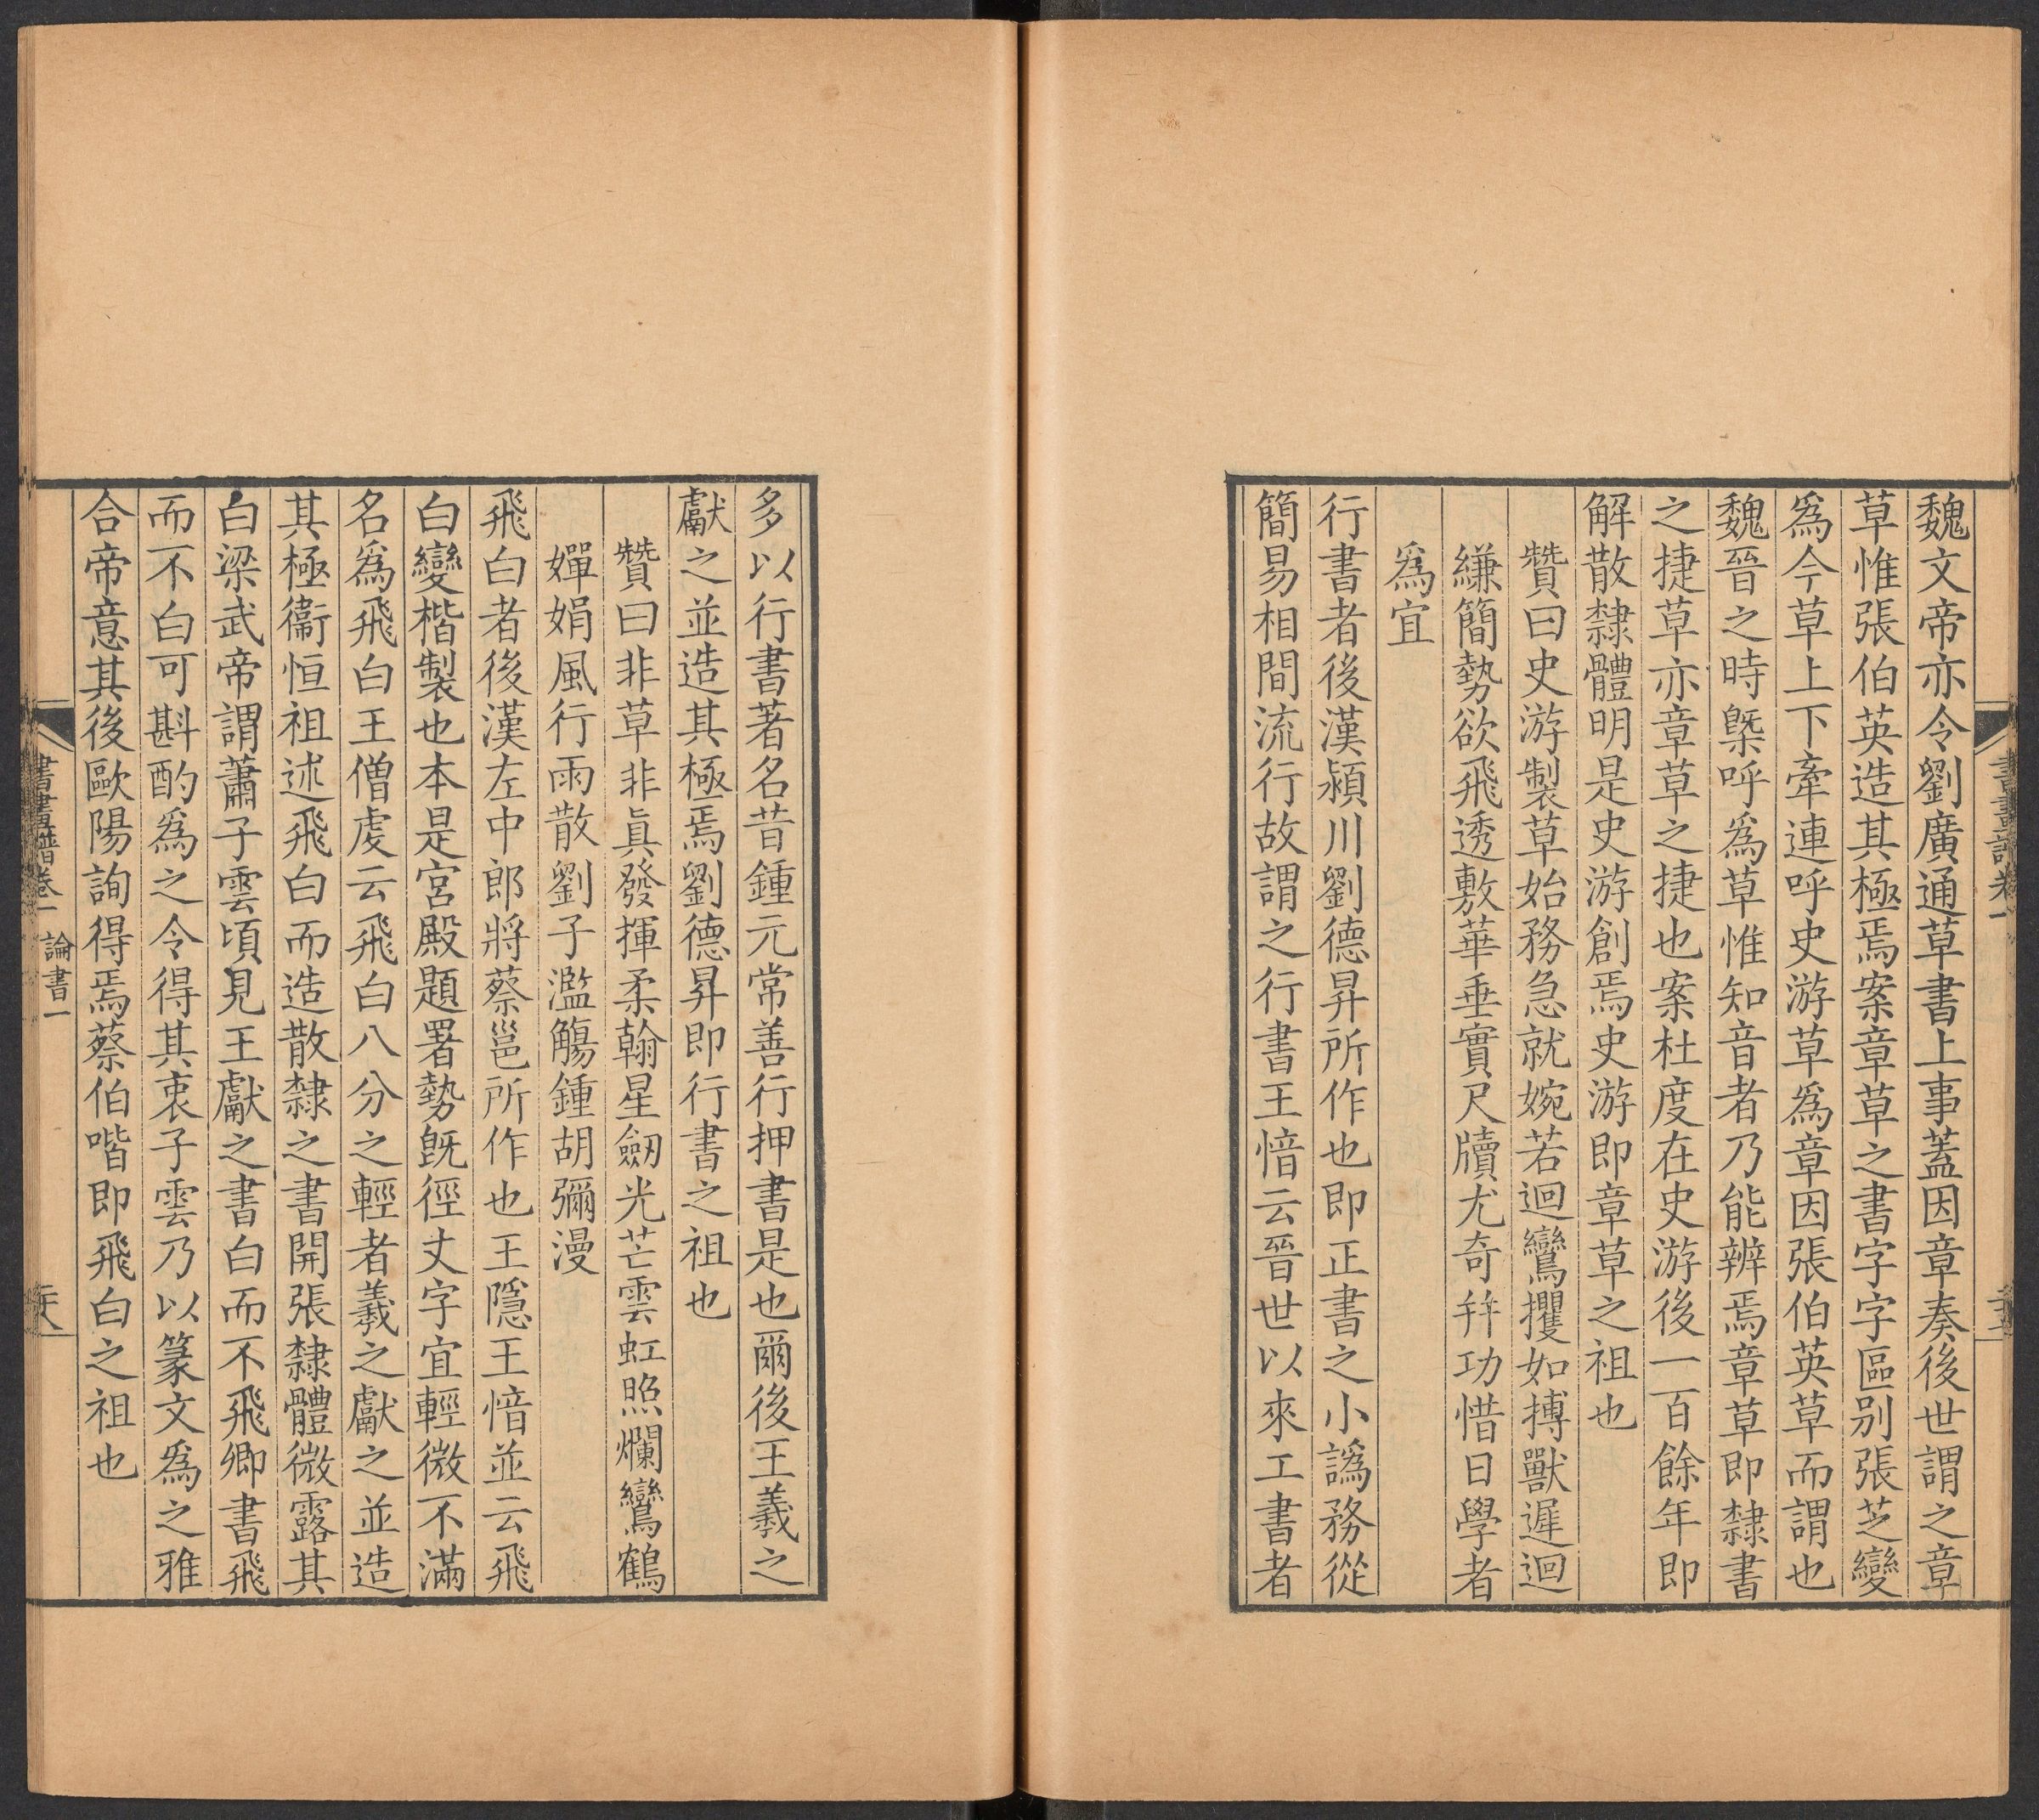 魏文帝亦令劉廣通草書上事蓋因章奏後世謂之章
草惟張伯英造其極焉案章草之書字字區别張芝變
爲今草上下牽連呼史游草爲章因張伯英草而謂也
魏晉之時槩呼爲草惟知音者乃能辨焉章草即隸書
之捷草亦章草之捷也案杜度在史游後一百餘年即
解散隸體明是史游創焉史游即章草之祖也
贊曰史游製草始務急就婉若迴鸞攫如搏獸遲迴
縑簡勢欲飛透敷華垂實尺牘尤奇幷功惜日學者
爲宜
行書者後漢潁川劉德昇所作也即正書之小譌務從
簡易相間流行故謂之行書王愔云晉世以來工書者
多以行書著名昔鍾元常善行押書是也爾後王羲之
獻之並造其極焉劉德昇即行書之祖也
贊曰非草非眞發揮柔翰星劒光芒雲虹照爛鸞鶴
嬋娟風行雨散劉子濫觴鍾胡彌漫
飛白者後漢左中郎將蔡邕所作也王隱王愔並云飛
白變楷製也本是宮殿題署勢旣徑丈字宜輕微不滿
名爲飛白王僧虔云飛白八分之輕者羲之獻之並造
其極衞恒祖述飛白而造散隸之書開張隸體微露其
白梁武帝謂蕭子雲頃見王獻之書白而不飛卿書飛
而不白可斟酌爲之令得其衷子雲乃以篆文爲之雅
合帝意其後歐陽詢得焉蔡伯喈即飛白之祖也
書畫譜卷一
論書一